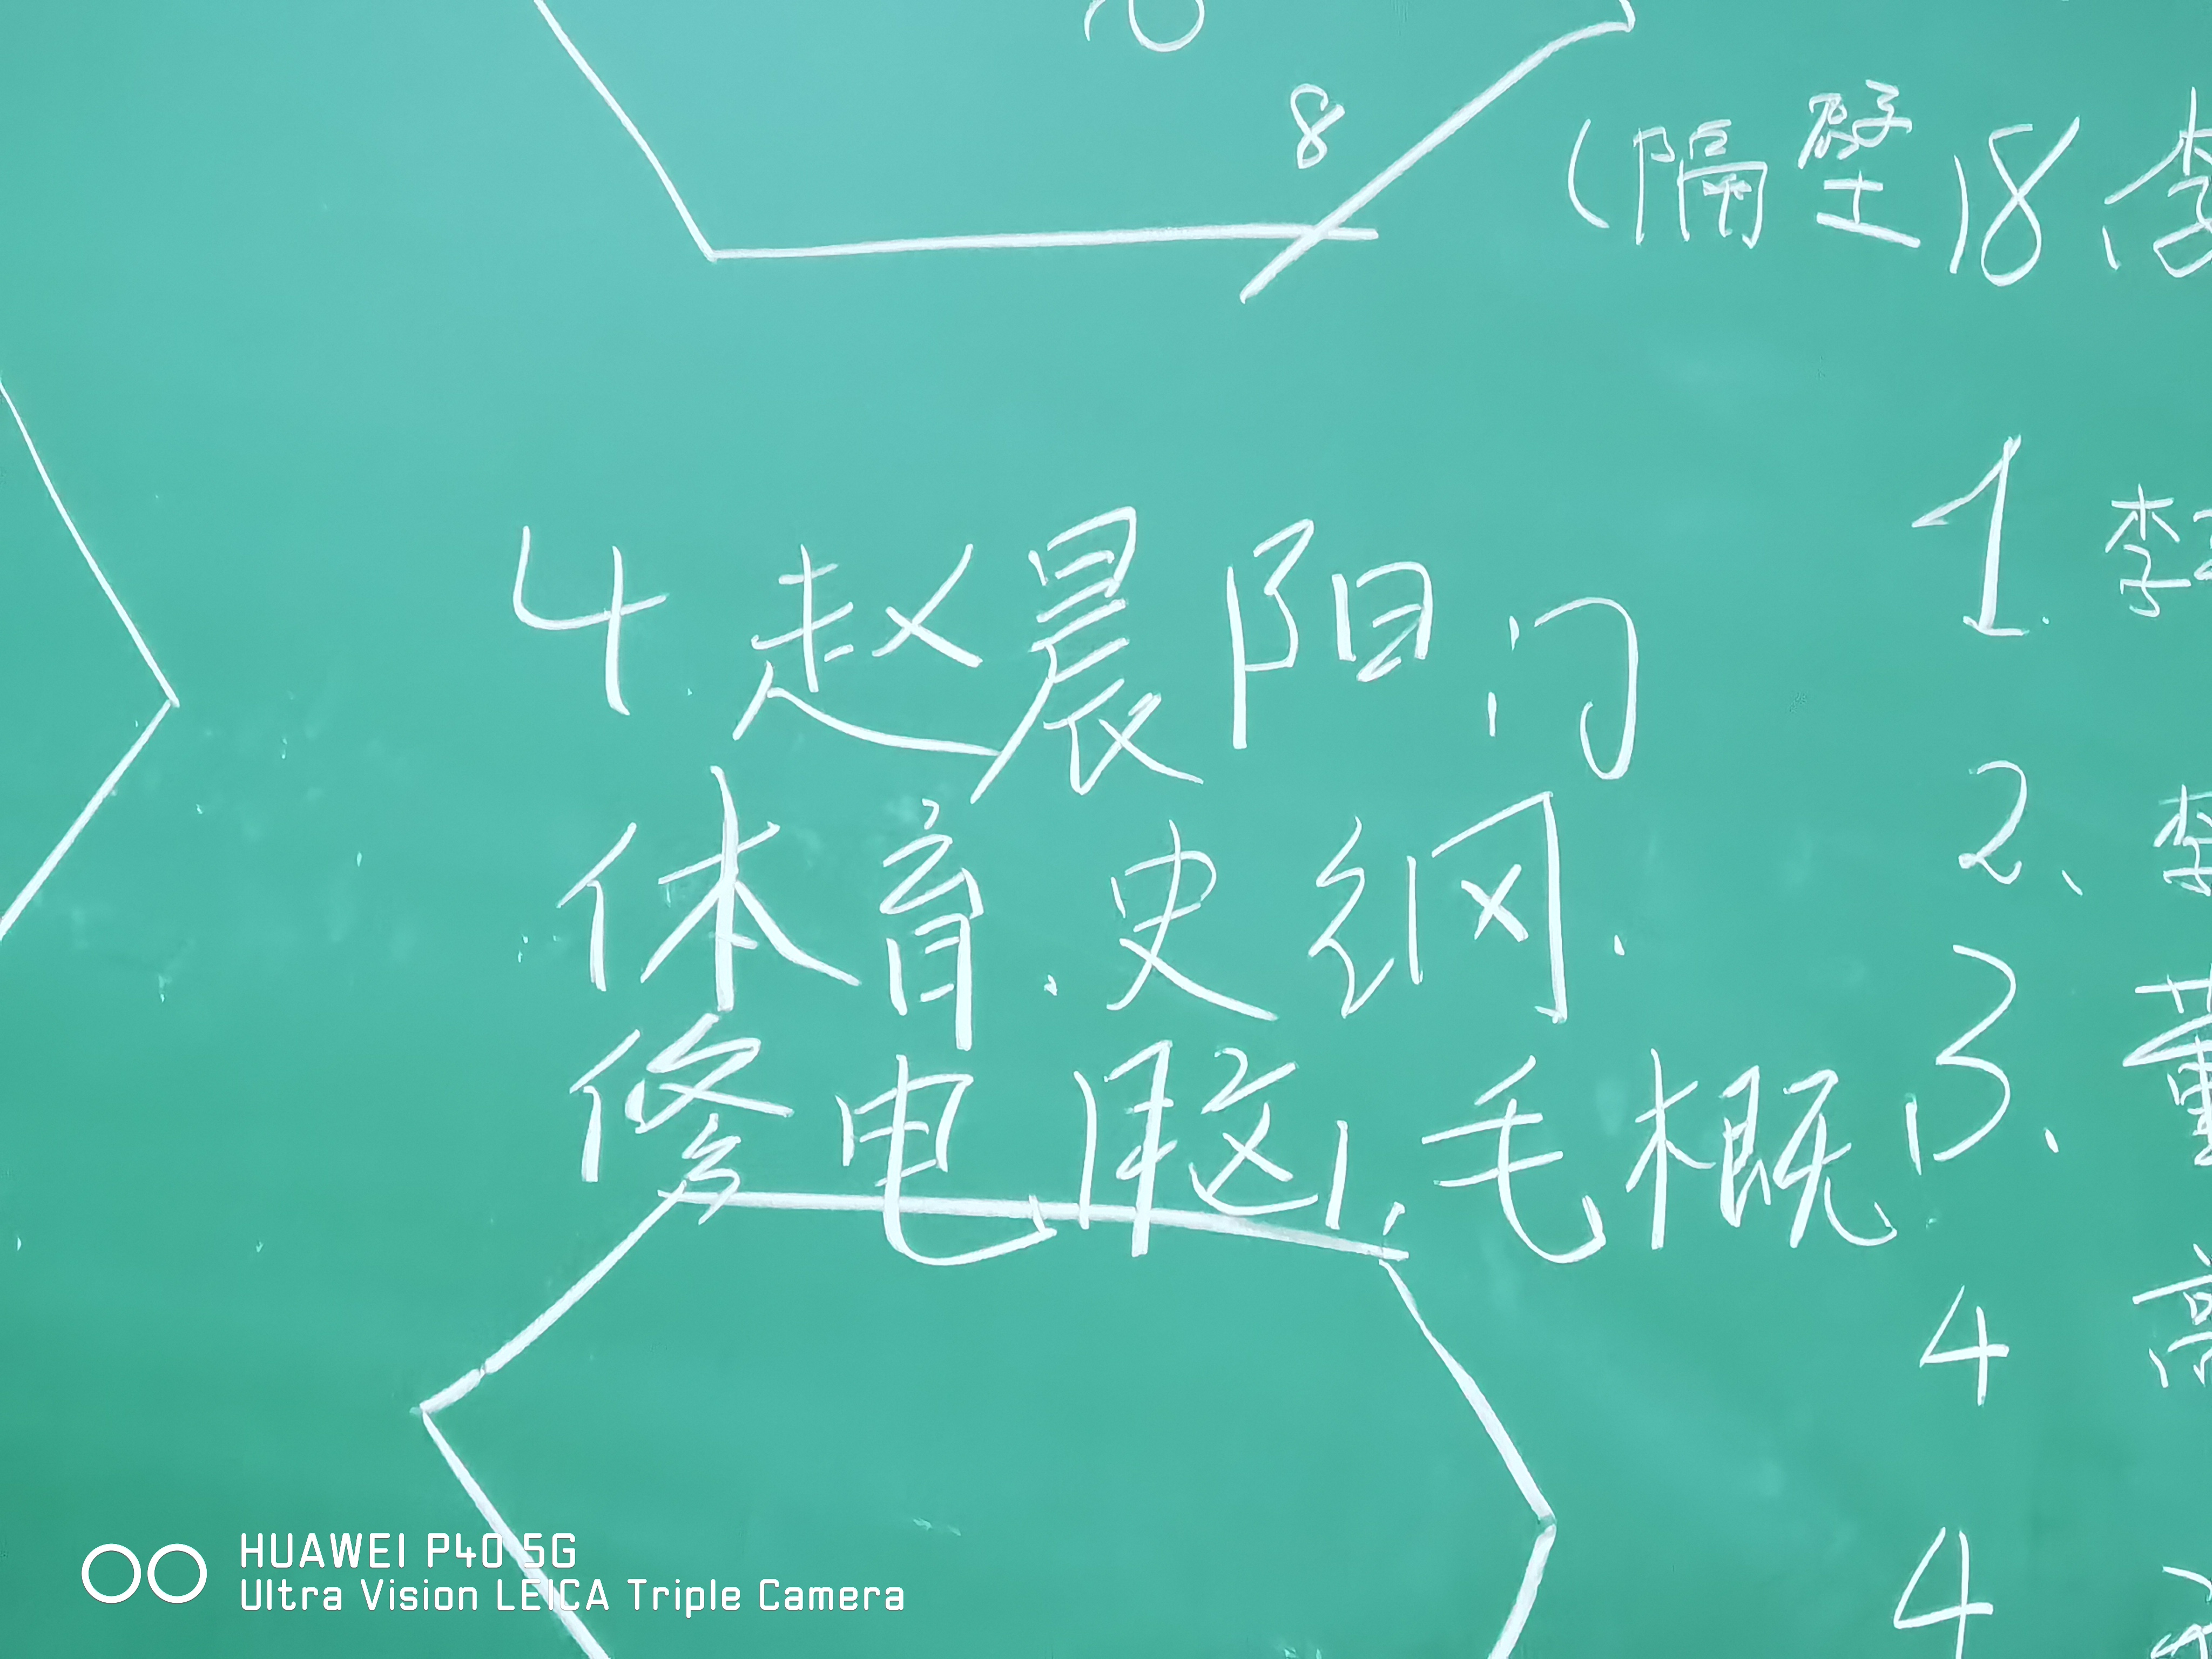 8
(隔壁18.
4.赵晨阳:
体育.史纲.
修电脑.毛概
1.李
2、
3、董
4 高
4
HUAWEI P40 5G
Ultra Vision LEICA Triple Camera